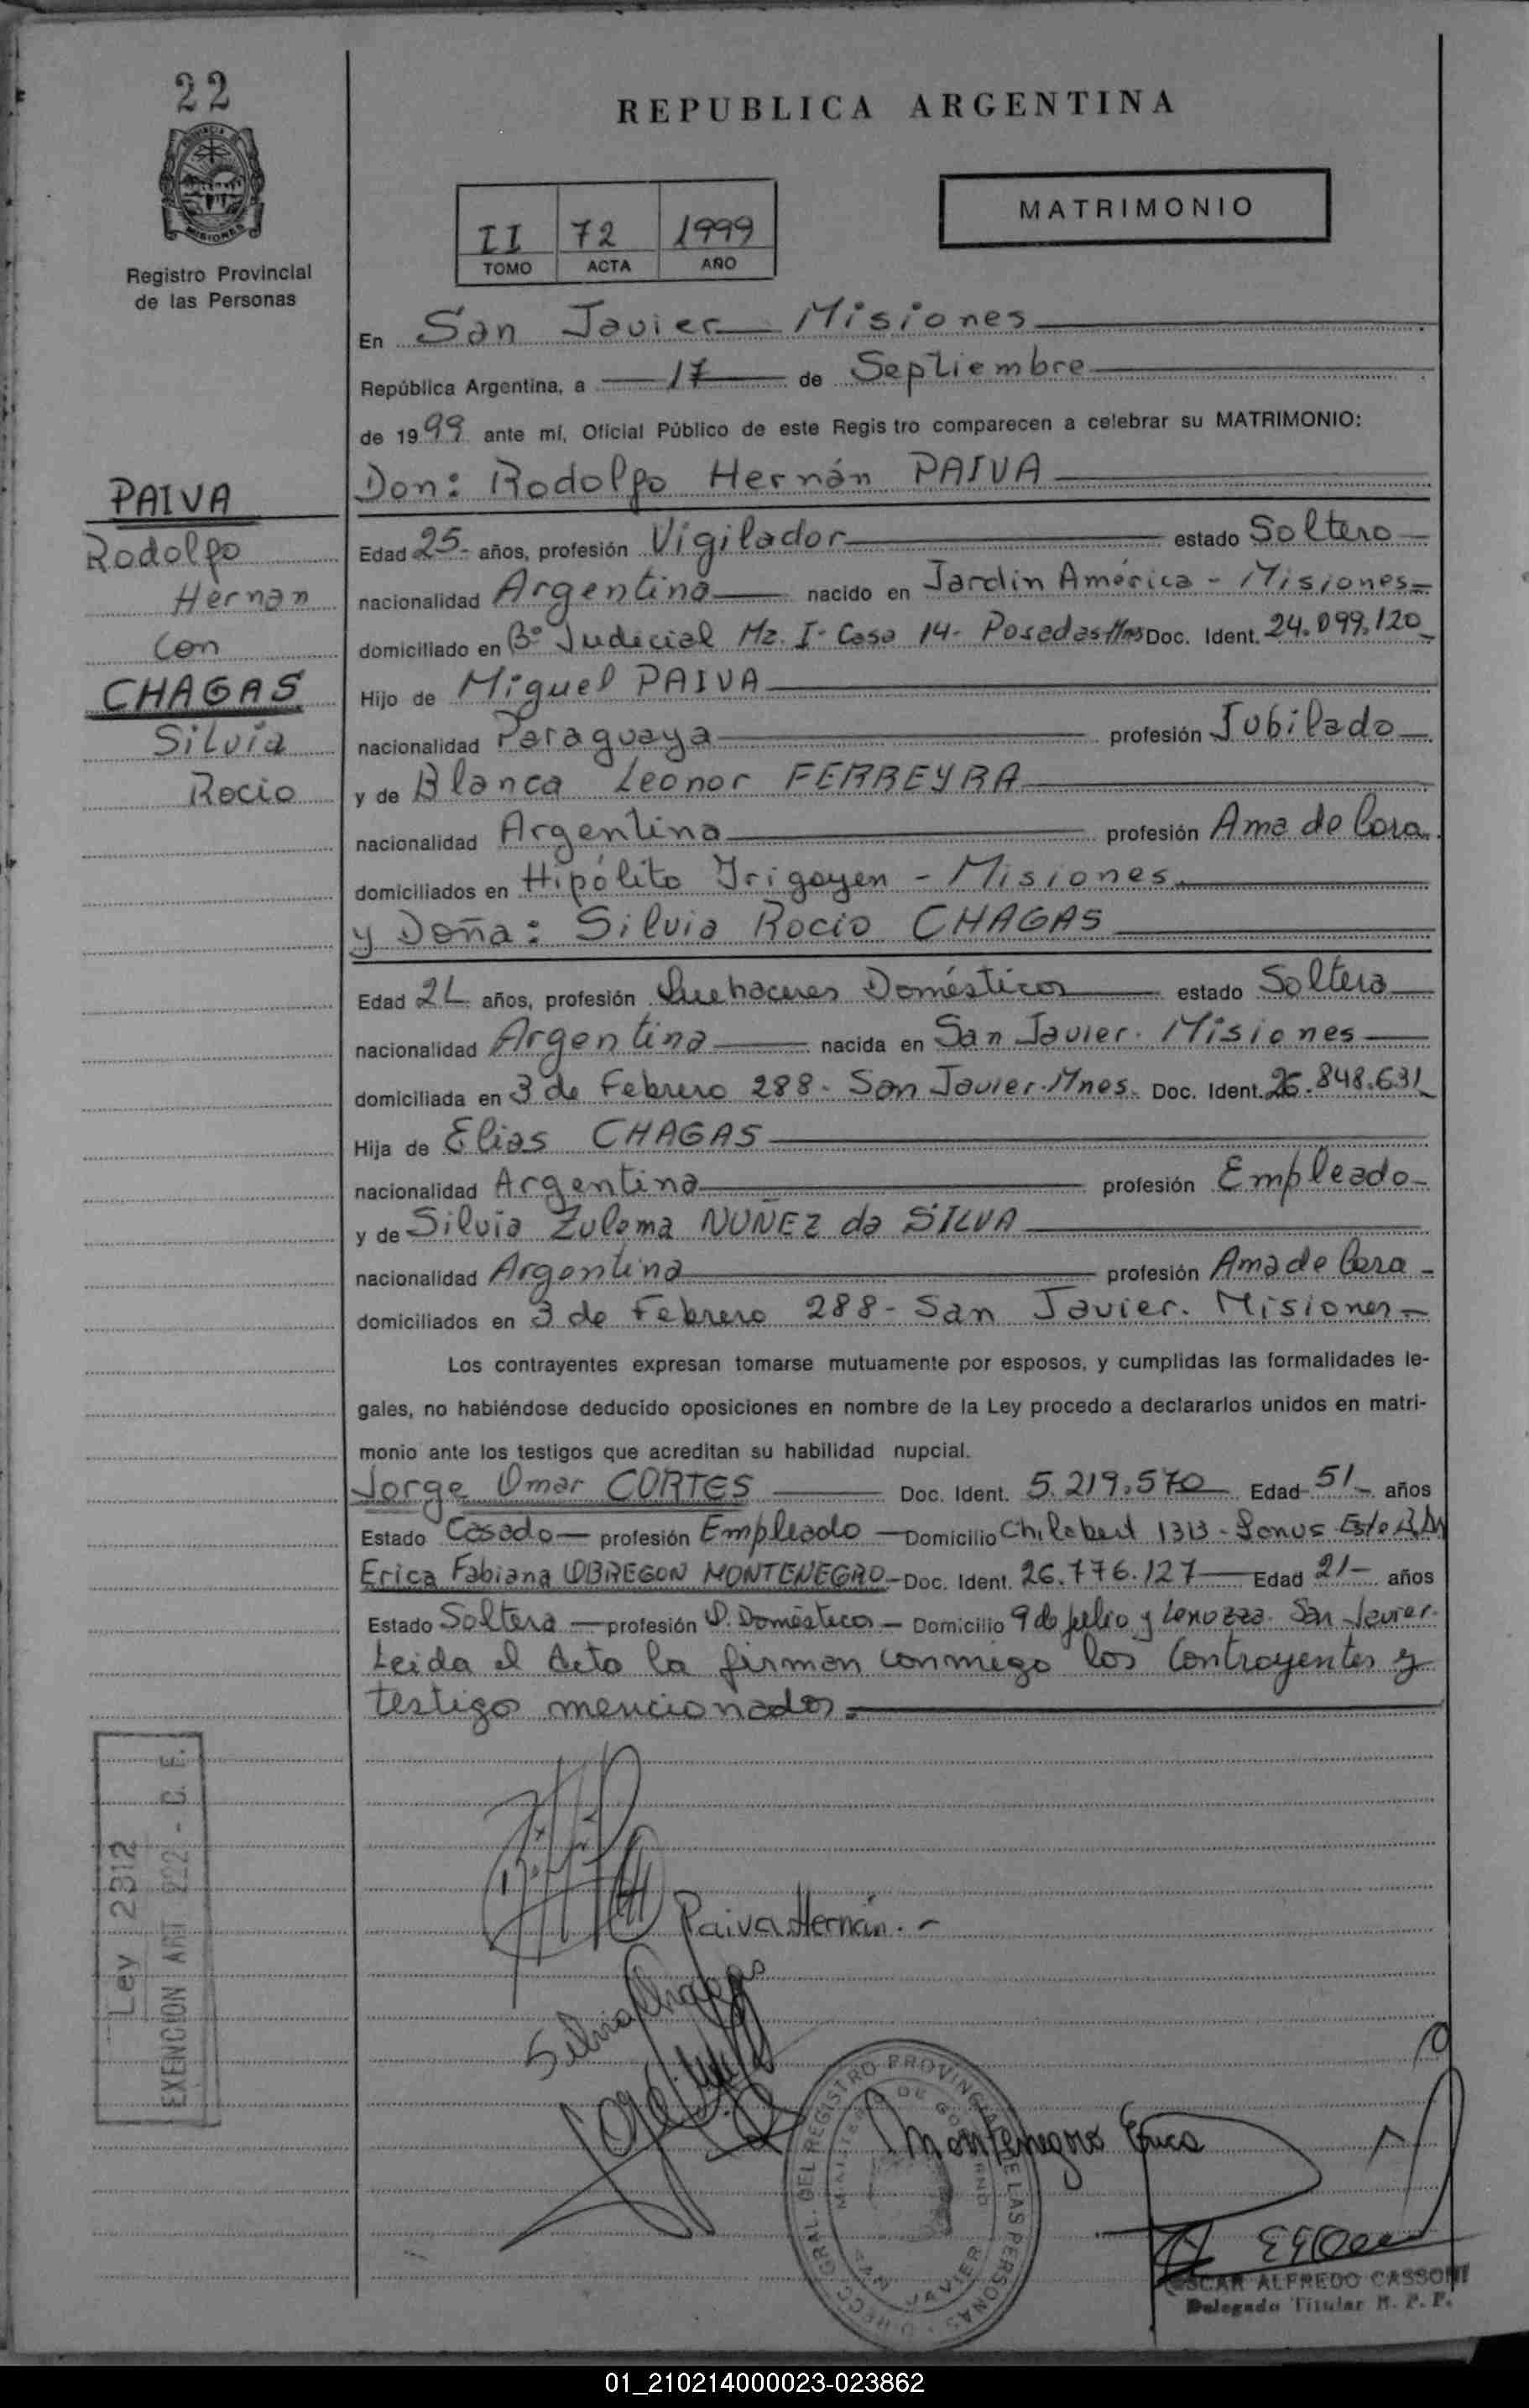 22
Registro Provincial
de las Personas
REPUBLICA ARGENTINA
II 72 1999
TOMO ACTA AÑO
MATRIMONIO
En San Javier Misiones
República Argentina, a 17 de Septiembre
de 1999 ante mí, Oficial Público de este Regis tro comparecen a celebrar su MATRIMONIO:
Don: Rodolfo Hernán PAIVA
PAIVA
Rodolfo
Hernan
con
CHAGAS
Silvia
Rocio
Edad 25- años, profesión Vigilador estado Soltero
nacionalidad Argentina nacido en Jardín América - Misiones
domiciliado en Bº Judicial Mz. I- Casa 14- Posadas Mnes Doc. Ident. 24.099.120
Hijo de Miguel PAIVA
nacionalidad Paraguaya profesión Jubilado
y de Blanca Leonor FERREYRA
nacionalidad Argentina profesión Ama de Casa
domiciliados en Hipólito Irigoyen - Misiones
y Doña: Silvia Rocio CHAGAS
Edad años, profesión Quehaceres Domésticos estado Soltera
nacionalidad Argentina nacida en San Javier. Misiones
domiciliada en 3 de Febrero 288- San Javier-Mnes. Doc. Ident. 26.848.631
Hija de Elias CHAGAS
nacionalidad Argentina profesión Empleado
y de Silvia Zulema NUÑEZ da SILVA
nacionalidad Argentina profesión Ama de Casa
domiciliados en 3 de Febrero 288- San Javier. Misiones
Los contrayentes expresan tomarse mutuamente por esposos, y cumplidas las formalidades le-
gales, no habiéndose deducido oposiciones en nombre de la Ley procedo a declararlos unidos en matri-
monio ante los testigos que acreditan su habilidad nupcial.
Jorge Omar CORTES Doc. Ident. 5.219.570 Edad 51 años
Estado Casado profesión Empleado Domicilio 1313-
Erica Fabiana OBREGON MONTENEGRO- Doc. Ident. 26.776.127 Edad 21- años
Estado Soltera profesión Q. Domésticos - Domicilio 9 de Julio y San Javier.
Leida el Acta la firman conmigo los Contrayentes y
testigos mencionados.
Ley 2312
EXENCION ART 222 - C. F.
Paiva Hernán.-
Silvia Chagas
Montenegro Erica
DIRECC. GRAL. DEL REGISTRO PROVINCIAL DE LAS PERSONAS
MINISTERIO DE GOBIERNO
SAN JAVIER
OSCAR ALFREDO CASSONI
Delegado Titular R. P. P.
01_210214000023-023862